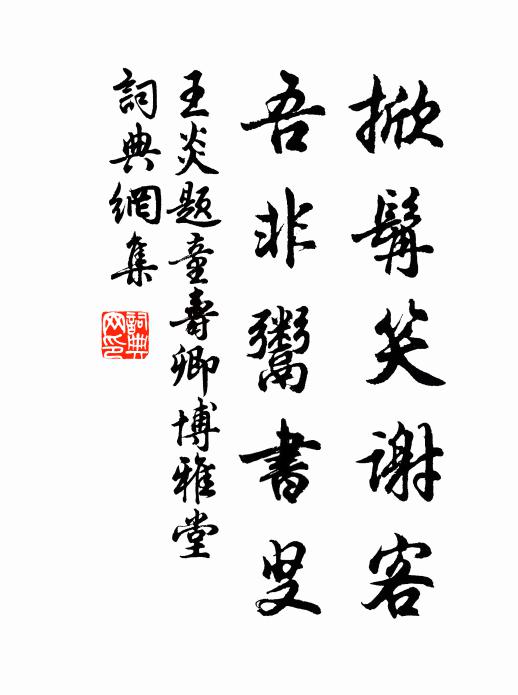 掀髯笑谢客
吾非鬻書叟
王炎题童壽卿博雅堂
詞典網集
詞典网印